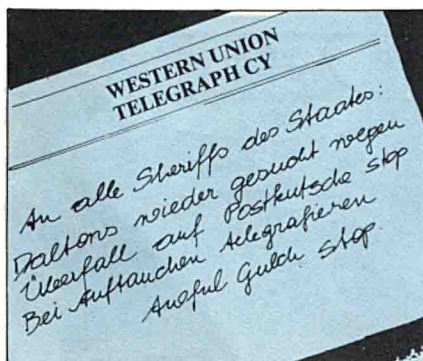 WESTERN UNION
TELEGRAPH CY
An alle Sheriffs des Staates:
Daltons wieder gesucht wegen
Überfall auf Postkutsche stop
Bei Auftauchen telegrafieren
Awful Gulch stop.